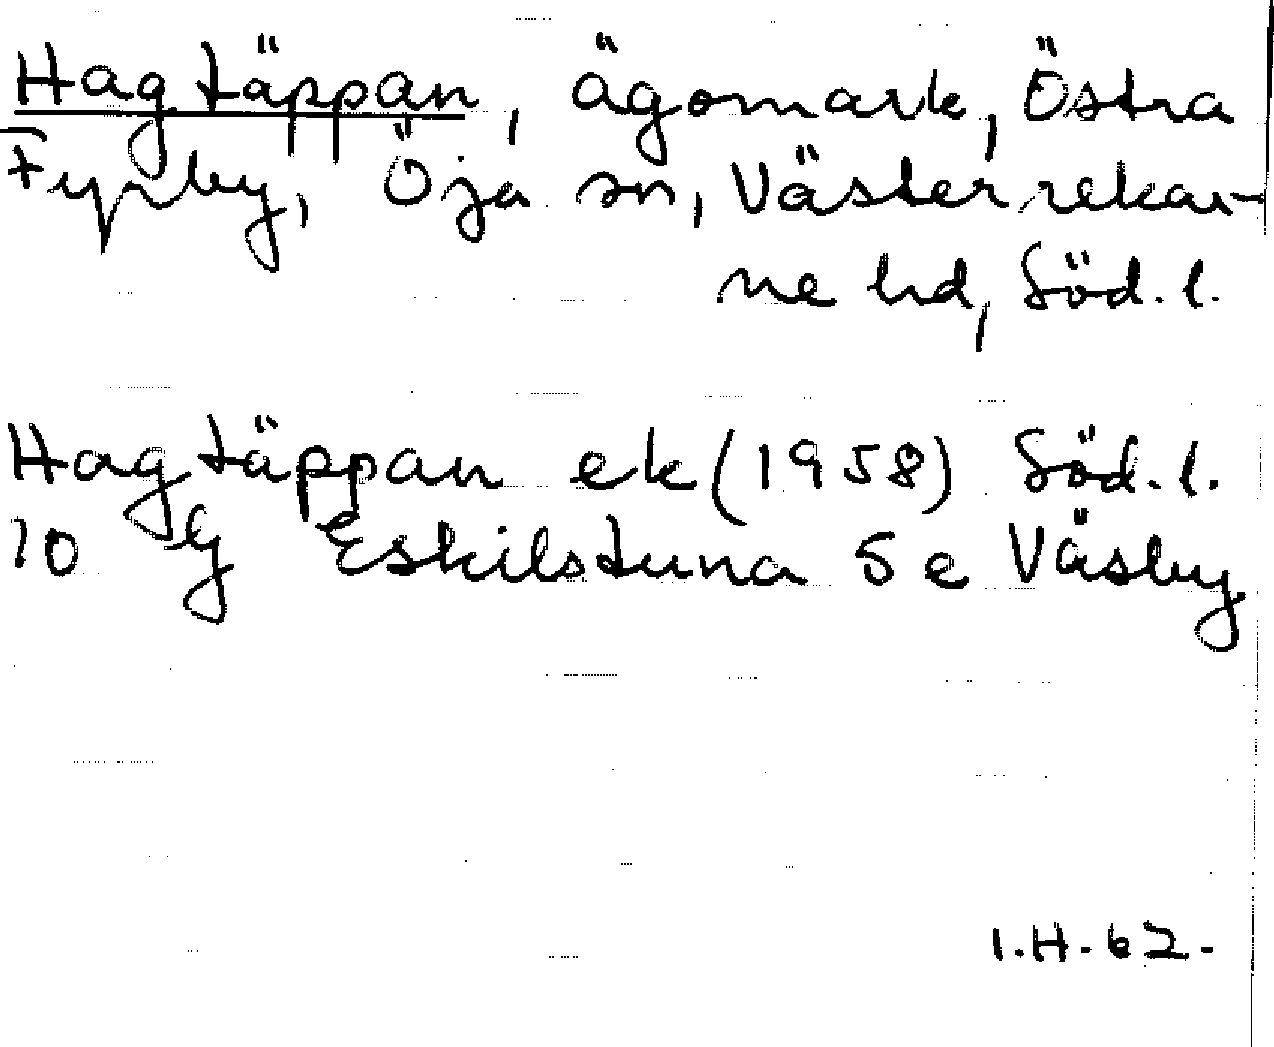 Hagtäppan, ägomark, Östra
Fyrby, Öja sn, Västerrekar-
ne hd, Söd. l.
Hagtäppan ek (1958) Söd. l.
10 G Eskilstuna 5 e Väsby
I.H.62.